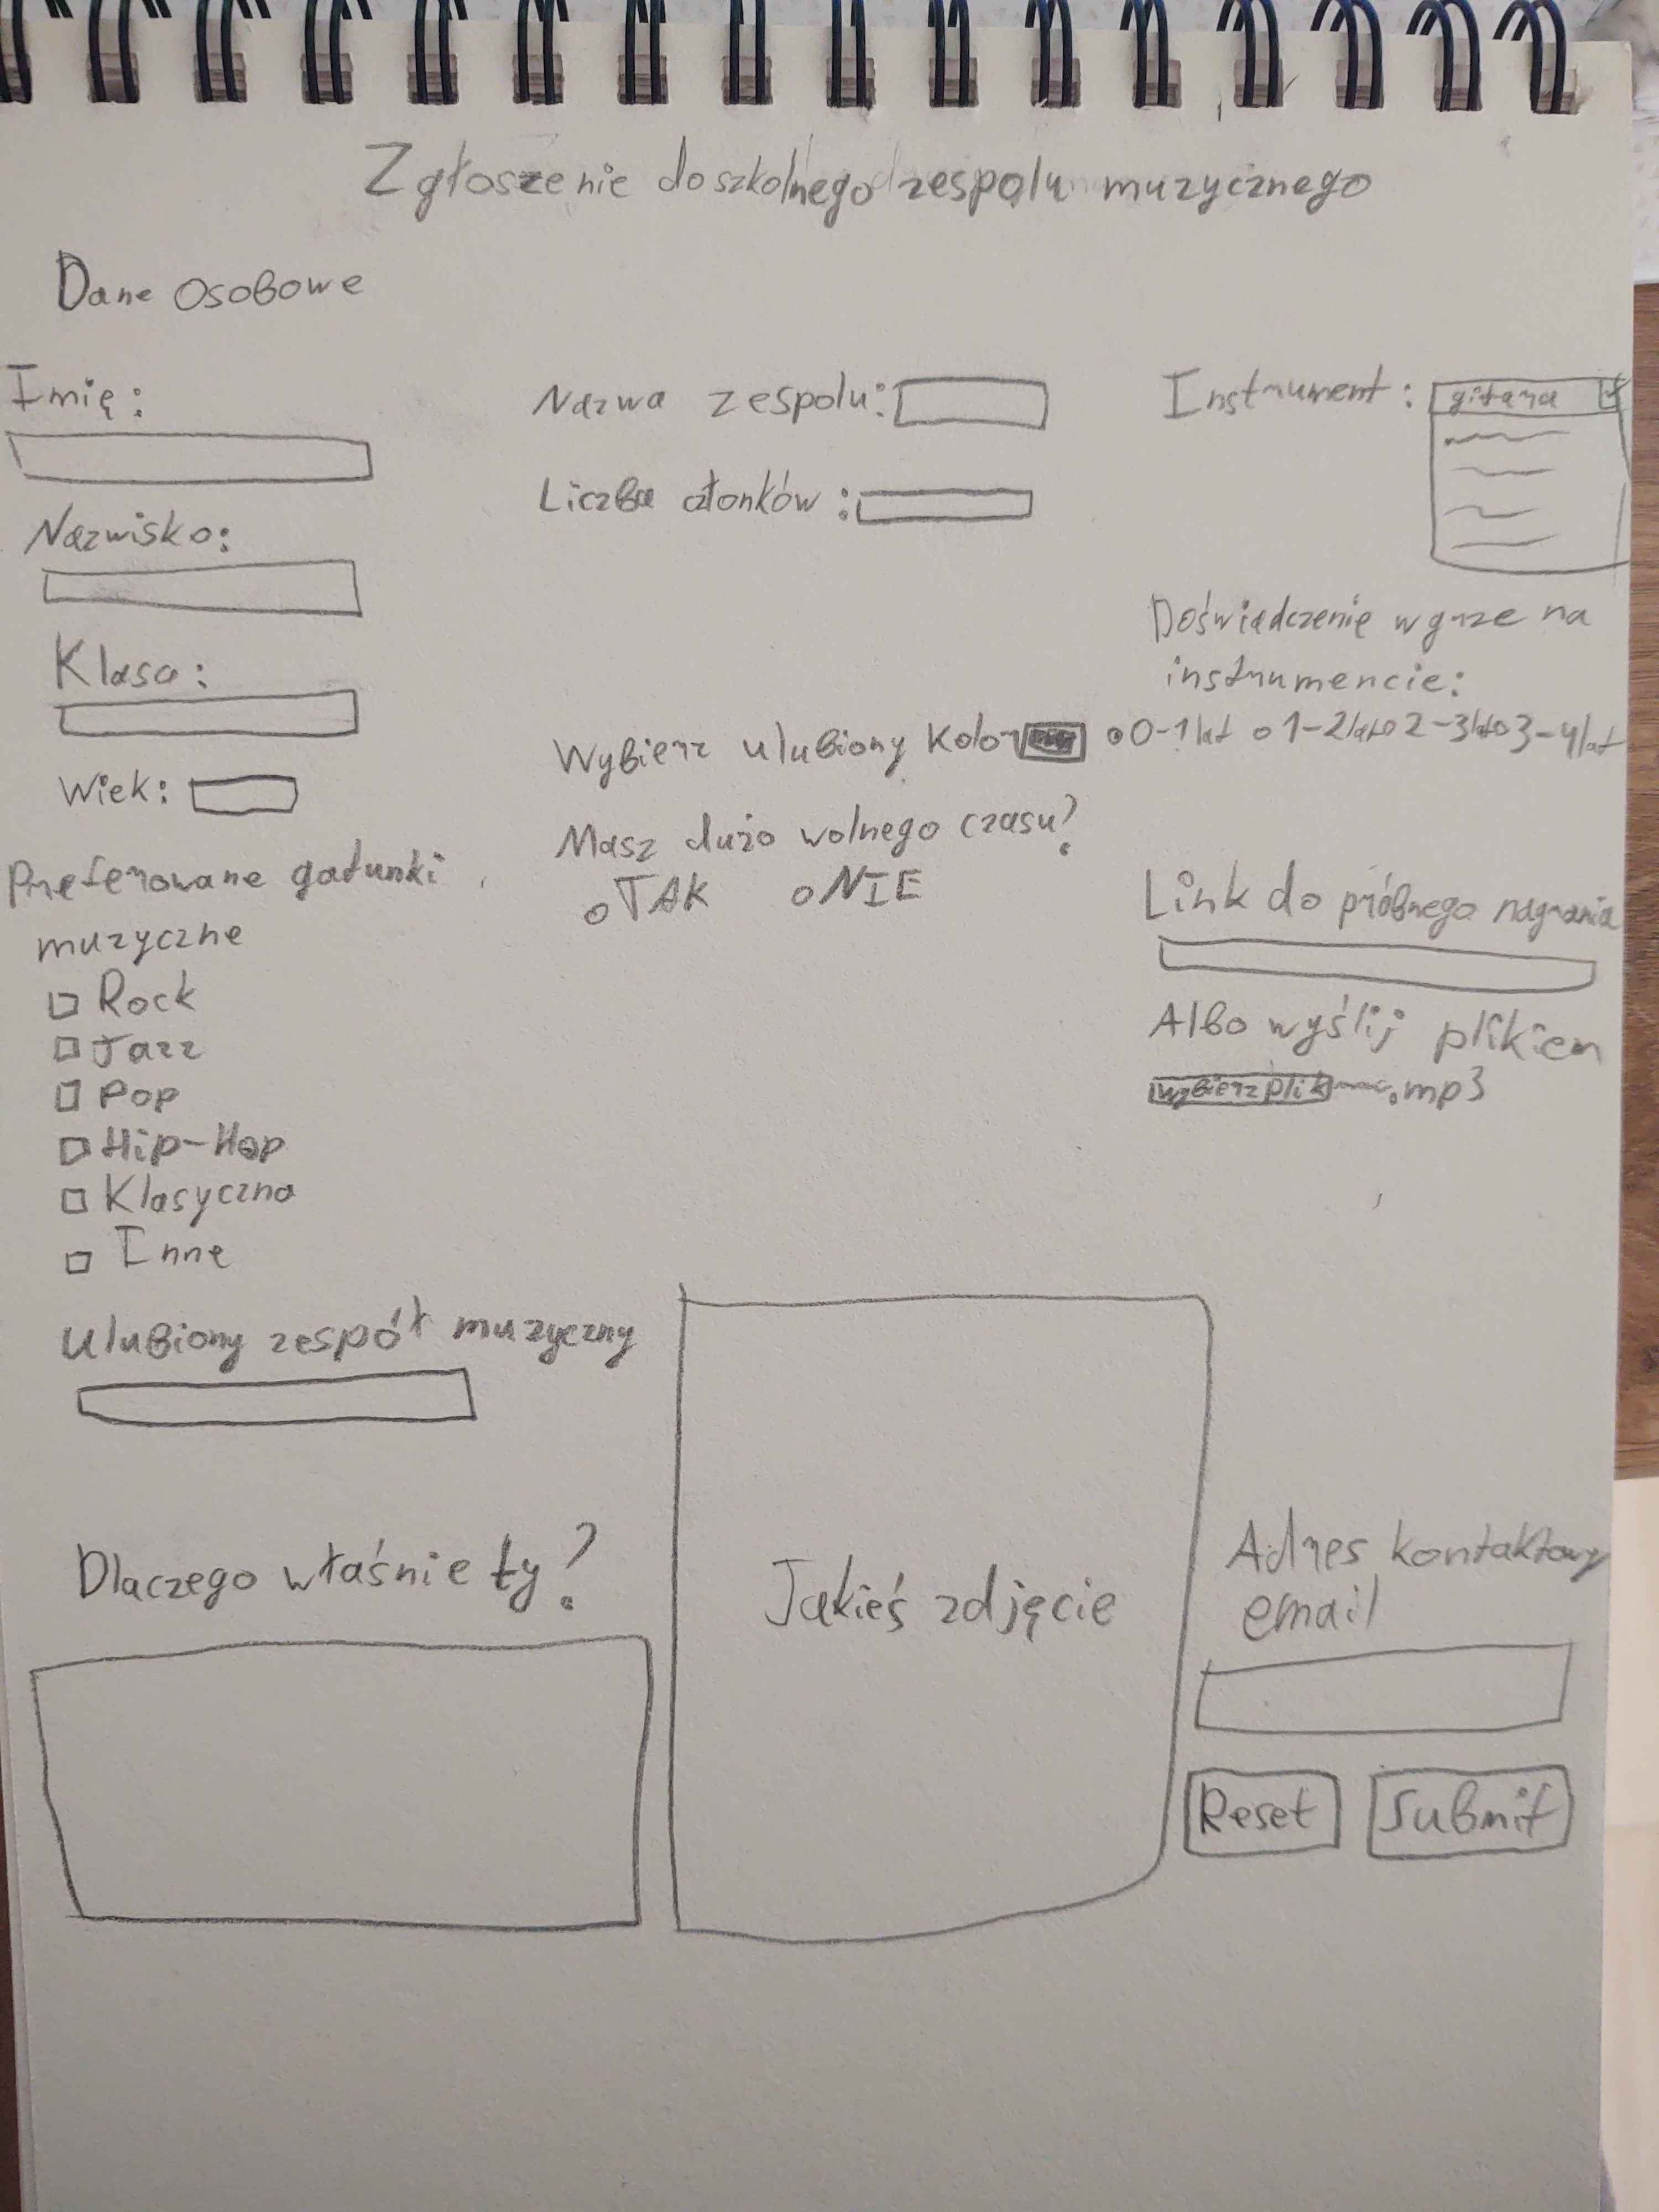 Zgłoszenie do szkolnego zespolu muzycznego
Dane osobowe
Imię:
Nazwisko:
Klasa:
Wiek:
Preferowane gatunki
muzyczne
Rock
Jazz
Pop
Hip-Hop
Klasyczna
Inne
Ulubiony zespół muzyczny
Dlaczego właśnie ty?
Nazwa zespolu:
Liczba członków:
Wybierz ulubiony kolor
Masz dużo wolnego czasu?
TAK NIE
Jakieś zdjęcie
Instrument: gitara
Doświadczenie w grze na
instrumencie:
0-1 lat 1-2 lat 2-3 lat 3-4 lat
Link do próbnego nagrania
Albo wyślij plikiem
wybierz plik .mp3
Adres kontaktowy
email
Reset Submit